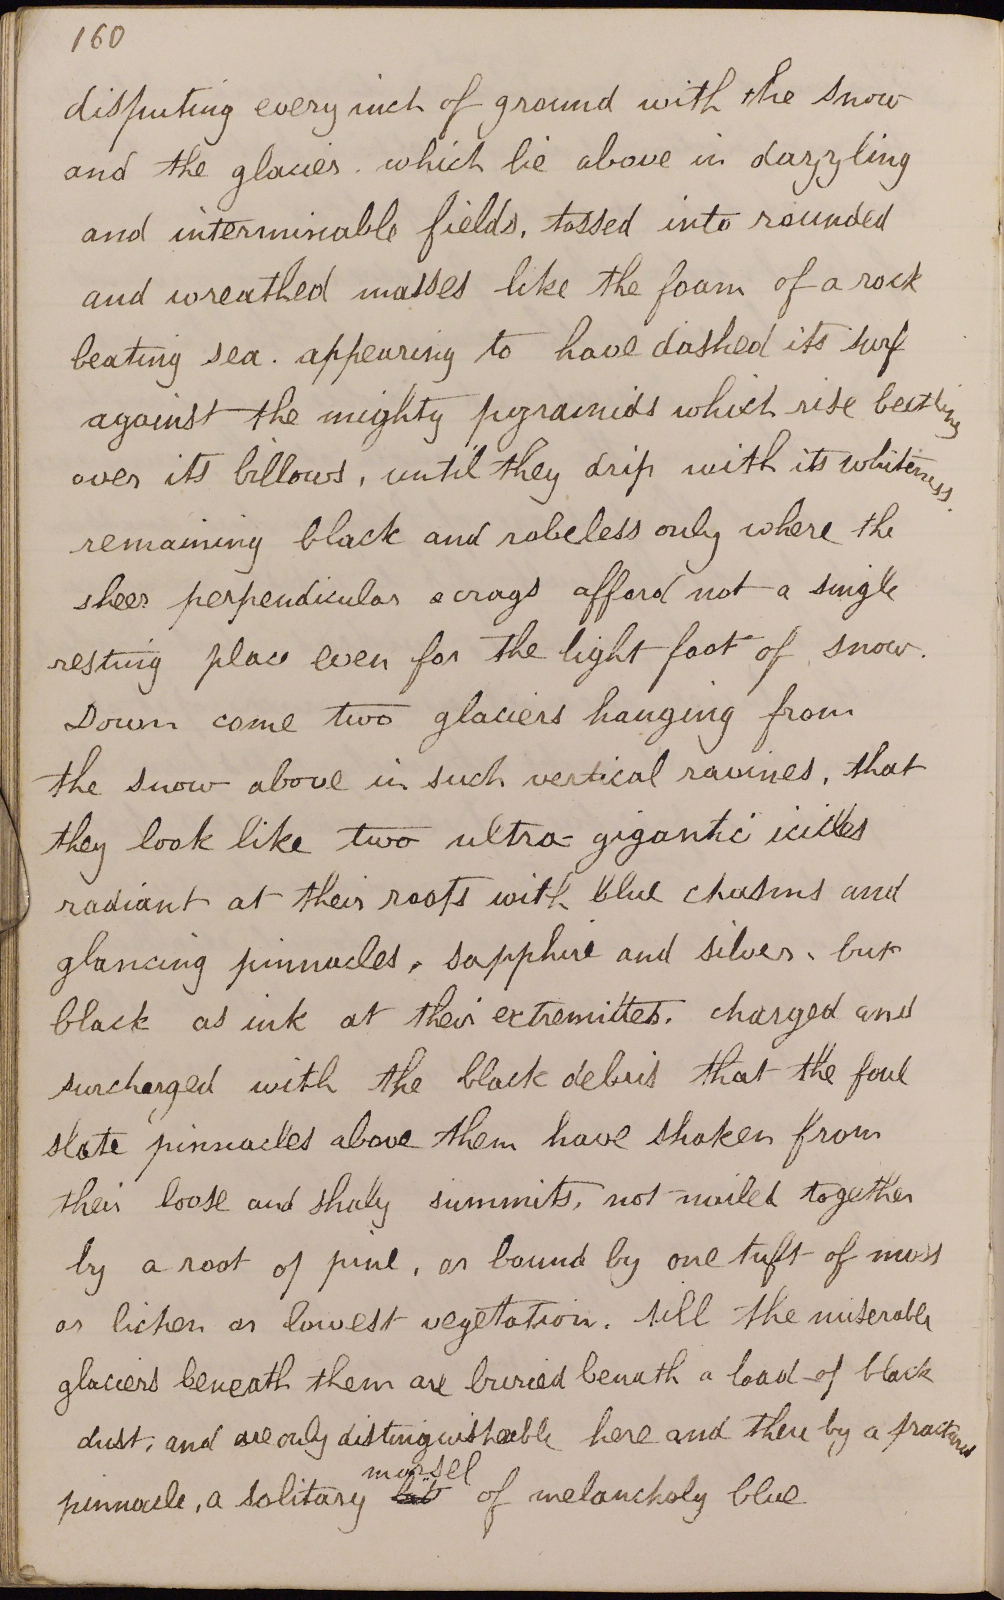 160
disputing every inch of ground with the snow
and the glacier. which lie above in dazzling
and interminable fields, tossed into rounded
and wreathed masses like the foam of a rock
beating sea. appearing to have dashed its surf
against the mighty pyramids which rise beetling
over its billows, until they drip with its whiteness.
remaining black and robeless only where the
sheer perpendicular scrags afford not a single
resting place even for the light foot of snow.
Down come two glaciers hanging from
the snow above in such vertical ravines, that
they look like two ultra-gigantic icicles
radiant at their roots with blue chasms and
glancing pinnacles, sapphire and silver, but
black as ink at their extremittes. charged and
surcharged with the black debris that the foul
slate pinnacles above them have shaken from
their loose and shaly summits, not nailed together
by a root of pine, or bound by one tuft of moss
or lichen or lowest vegetation. till the miserable
glaciers beneath them are buried beneath a load of black
dust, and are only distinguisheable here and there by a fractured
morsel
pinnacle, a solitary bit of melancholy blue